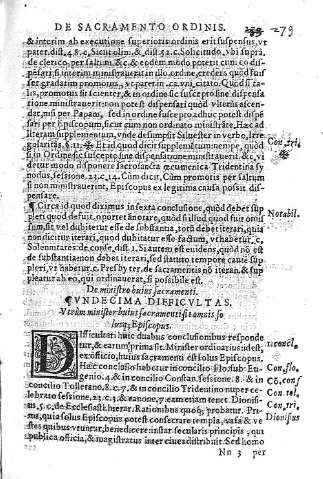 DE SACRAMENTO ORDINIS. 279
& interim ab executione superioris ordinis erit suspensus, vt
patet dist. 48. c. Sicut olim & dist. 52. c. Solicitudo. Vbi supra
de clerico, per saltum, & c. & eodem modo poterit cum eo di-
spensari si interim ministrauerit in illo ordine, credens quod fuis
set gradatim promotus, vt patet in ca. vni. citato. Quod si ta-
lis, promotus sit scienter, & in ordine sic suscepto sine dispensa
tione ministrauerit: non potest dispensari quod vlterius ascen-
dat, nisi per Papam, sed in ordine suscepto adhuc potest dispē
sari per Episcopum, sicut cum non ordinato ministrāte. Hæc ad
literam supplementum, vnde desumpsit Siluester in verbo, Irre
gularitas. §. 11. Et id quod dicit supplemētum nempe, quod
si in Ordine sic suscepto sine dispensatione ministrauerit, &c. vi
detur modo disponere sacrosancta œcumenica Tridentina sy
nodus, sessione, 23. c. 14. Cùm dicit, Cùm promotis per saltum
si non ministrauerint, Episcopus ex legitima causa possit dis-
pensare.
Con. tri.
¶ Circa id quod diximus in sexta conclusione, quod debet sup
pleri quod defuit, oportet ānotare, quod si illud quod fuit omis
sum, sit vel dubitetur esse de substantia, totū debet iterari, quia
non dicitur iterari, quod dubitatur esse factum, vt habetur. c.
Solennitates de conse. dist. 1. Si autem est euidens, quòd nō est
de substantia non debet iterari, sed statuto tempore cautè sup
pleri, vt habetur. c. Presbyter, de sacramentis nō iteran. & sup
pleatur ab eo, qui ordinauerat, si possibile est.
Notabil.
De ministro huius sacramenti.
¶VNDECIMA DIFFICVLTAS.
Vtrùm minister huius sacramenti sit omnis, so
lusq; Episcopus.
Difficultati huic duabus conclusionibus responde
tur, & earum prima sit. Minister ordinarius idest,
ex officio, huius sacramenti est solus Episcopus.
Hæc conclusio habetur in concilio Flo. sub Eu-
genio. 4. & in concilio Constan. sessione. 8. & in
concilio Tolletano. 8. c. 7. & in concilio Tridentino nuper ce-
lebrato sessione, 23. c. 4. & canone, 7. eam etiam tenet Dionisi-
us, 5. c. de Ecclesiast. hierar. Rationibus quoq; probatur. Pri-
mò, quia solus Episcopus potest consecrare templa, vasa & ve
stes quibus vtuntur, benedicere instar secularis principis, qui
publica officia, & magistratus inter ciues distribuit. Sed homo
1. concl.
Con. flo.
Cō. cōnf
Con. tri.
Dionisius
Nn 3 per